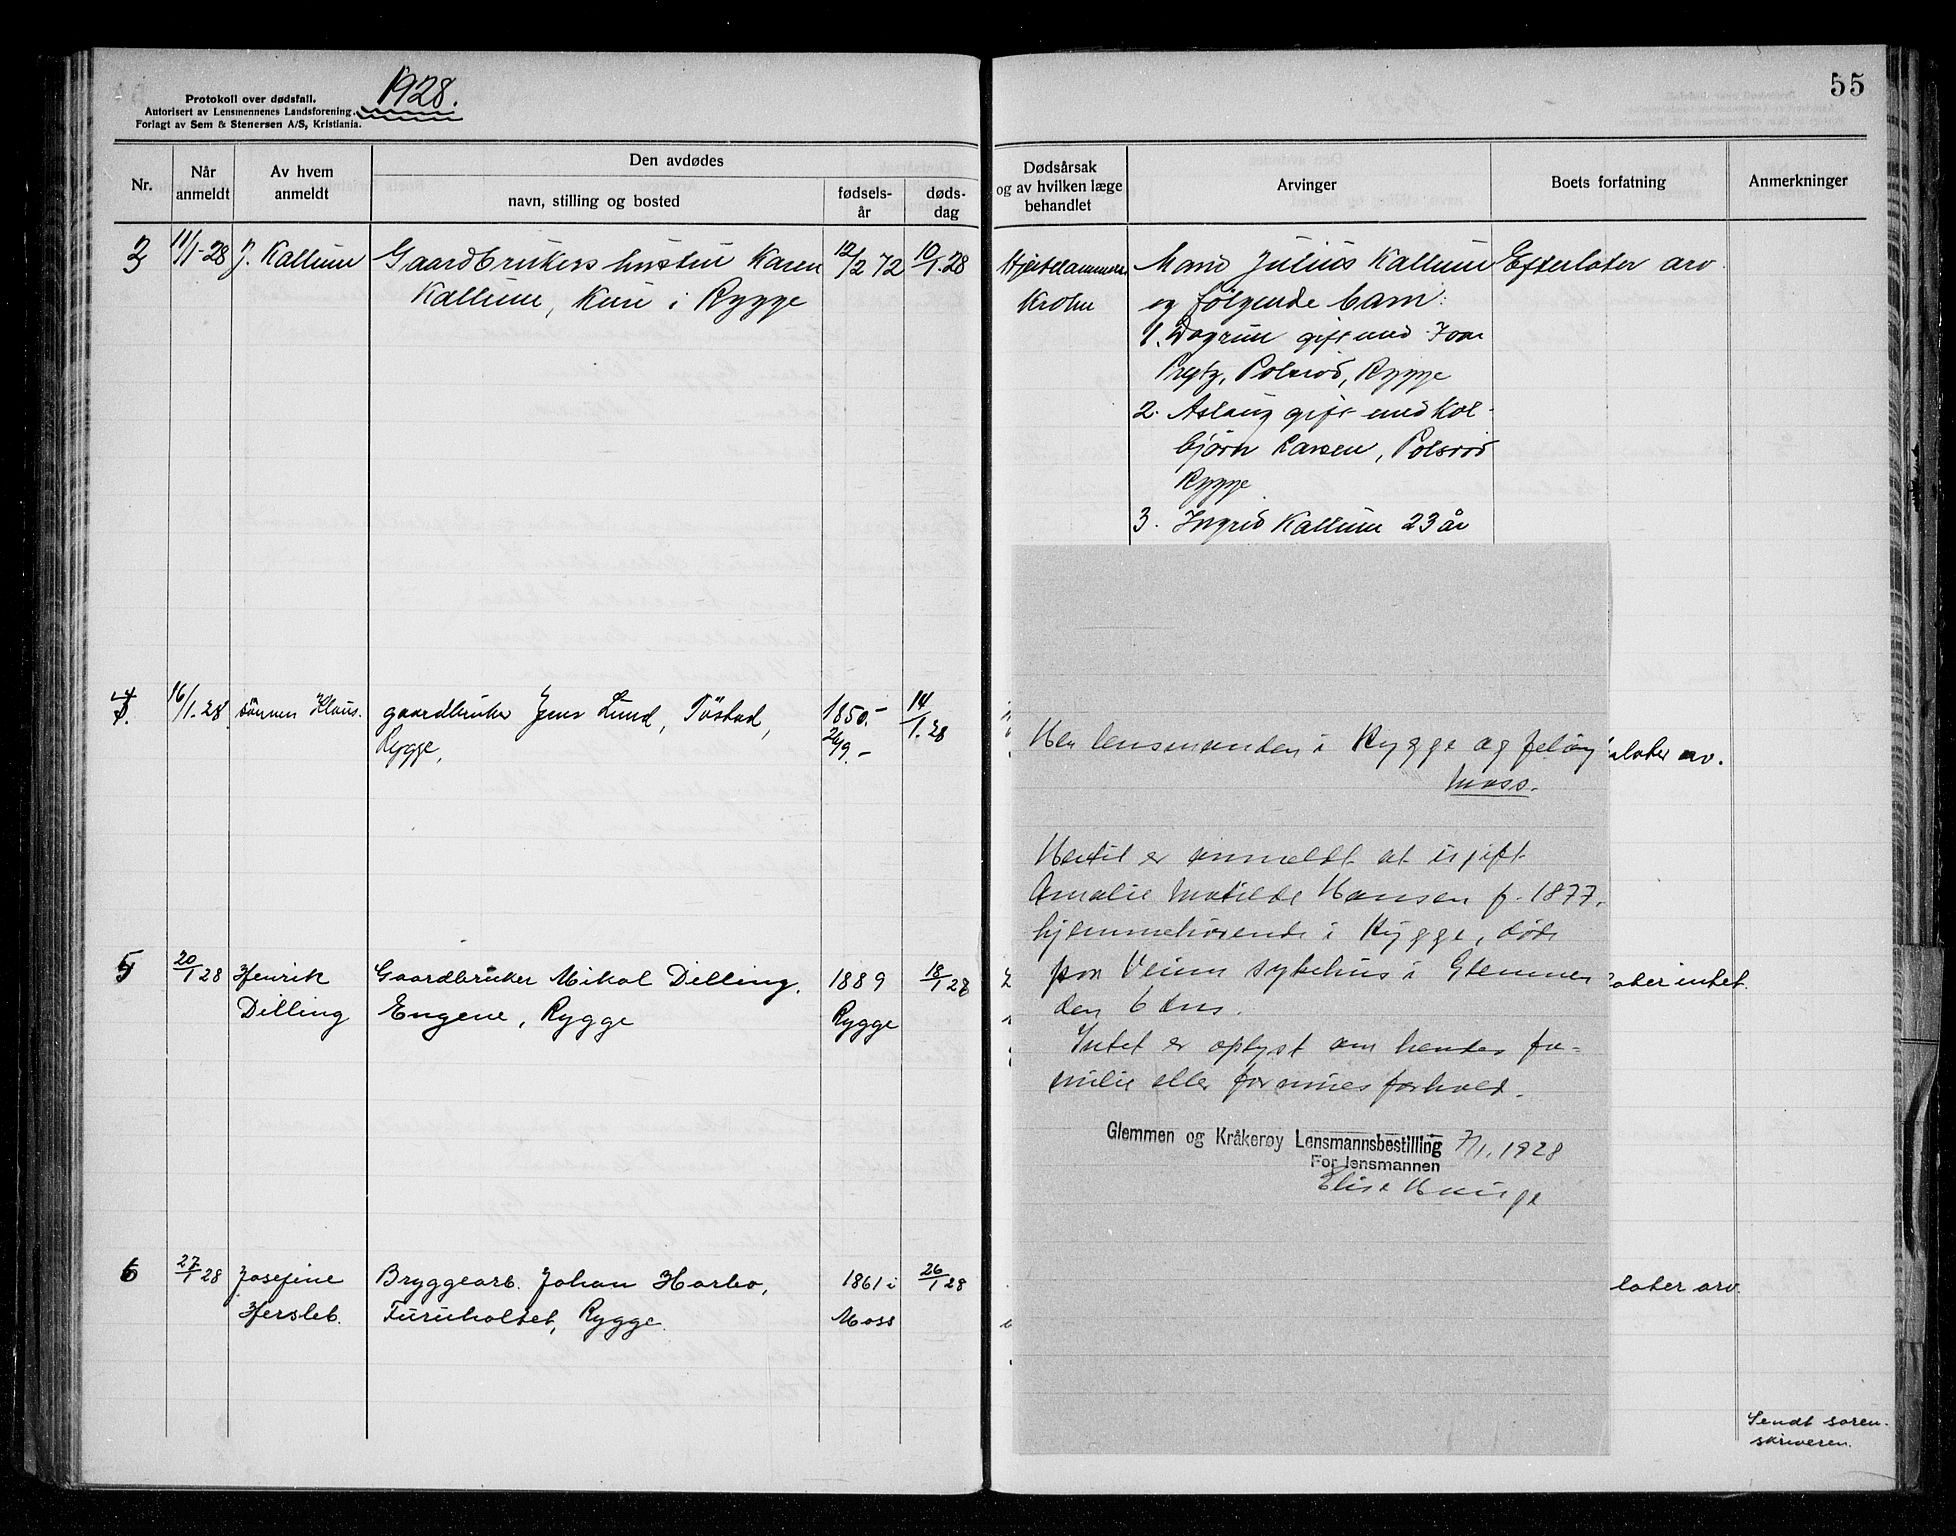 Protokoll over dødsfall.
Autorisert av Lensmennenes Landsforening.
Forlagt av Sem & Stenersen A/S, Kristiania.
1928.
55
Nr.
Når anmeldt
Av hvem anmeldt
Den avdødes
navn, stilling og bosted
fødsels-
år
døds-
dag
Dødsårsak
og av hvilken læge
behandlet
Arvinger
Boets forfatning
Anmerkninger
3
11/1-28
J. Kallum
Gaardbrukers hustru Karen
Kallum, Kure i Rygge
12/2 72
10/1.28
Krohn
Mand Julius Kallum
og følgende barn:
1. Dagrun gift med Ivar
Prytz, Polsrød, Rygge
2. Aslaug gift med Kol-
bjørn Larsen, Polsrød
Rygge
3. Ingrid Kallum 23 år
Efterlater arv
4
16/1.28
sønnen Klaus.
gaardbruker Jens Lund, Tøstad,
Rygge,
1850.-
24/9.-
14/1.28
later arv.
5
20/1 28
Henrik
Dilling
Gaardbruker Mikal Dilling,
Engene, Rygge
1889
Rygge
18/1 28
later intet.
6
27/1 28
Josefine
Hersleb.
Bryggearb. Johan Harbo,
Furuholtet, Rygge.
1861 i
Moss
26/1 28
later arv.
Sendt soren-
skriveren.
Hr lensmanden i Rygge og Jeløy
Moss.
Hertil er anmeldt at ugift
Amalie Matilde Hansen f. 1877,
hjemmehørende i Rygge, døde
paa Veum sykehus i Glemmen
den 6 ds.
Intet er oplyst om hendes fa-
milie eller formuesforhold.
Glemmen og Kråkerøy Lensmannsbestilling 7/1. 1928
For lensmannen
Elise Hauge